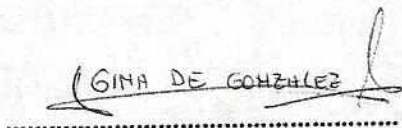 GINA DE GONZALEZ